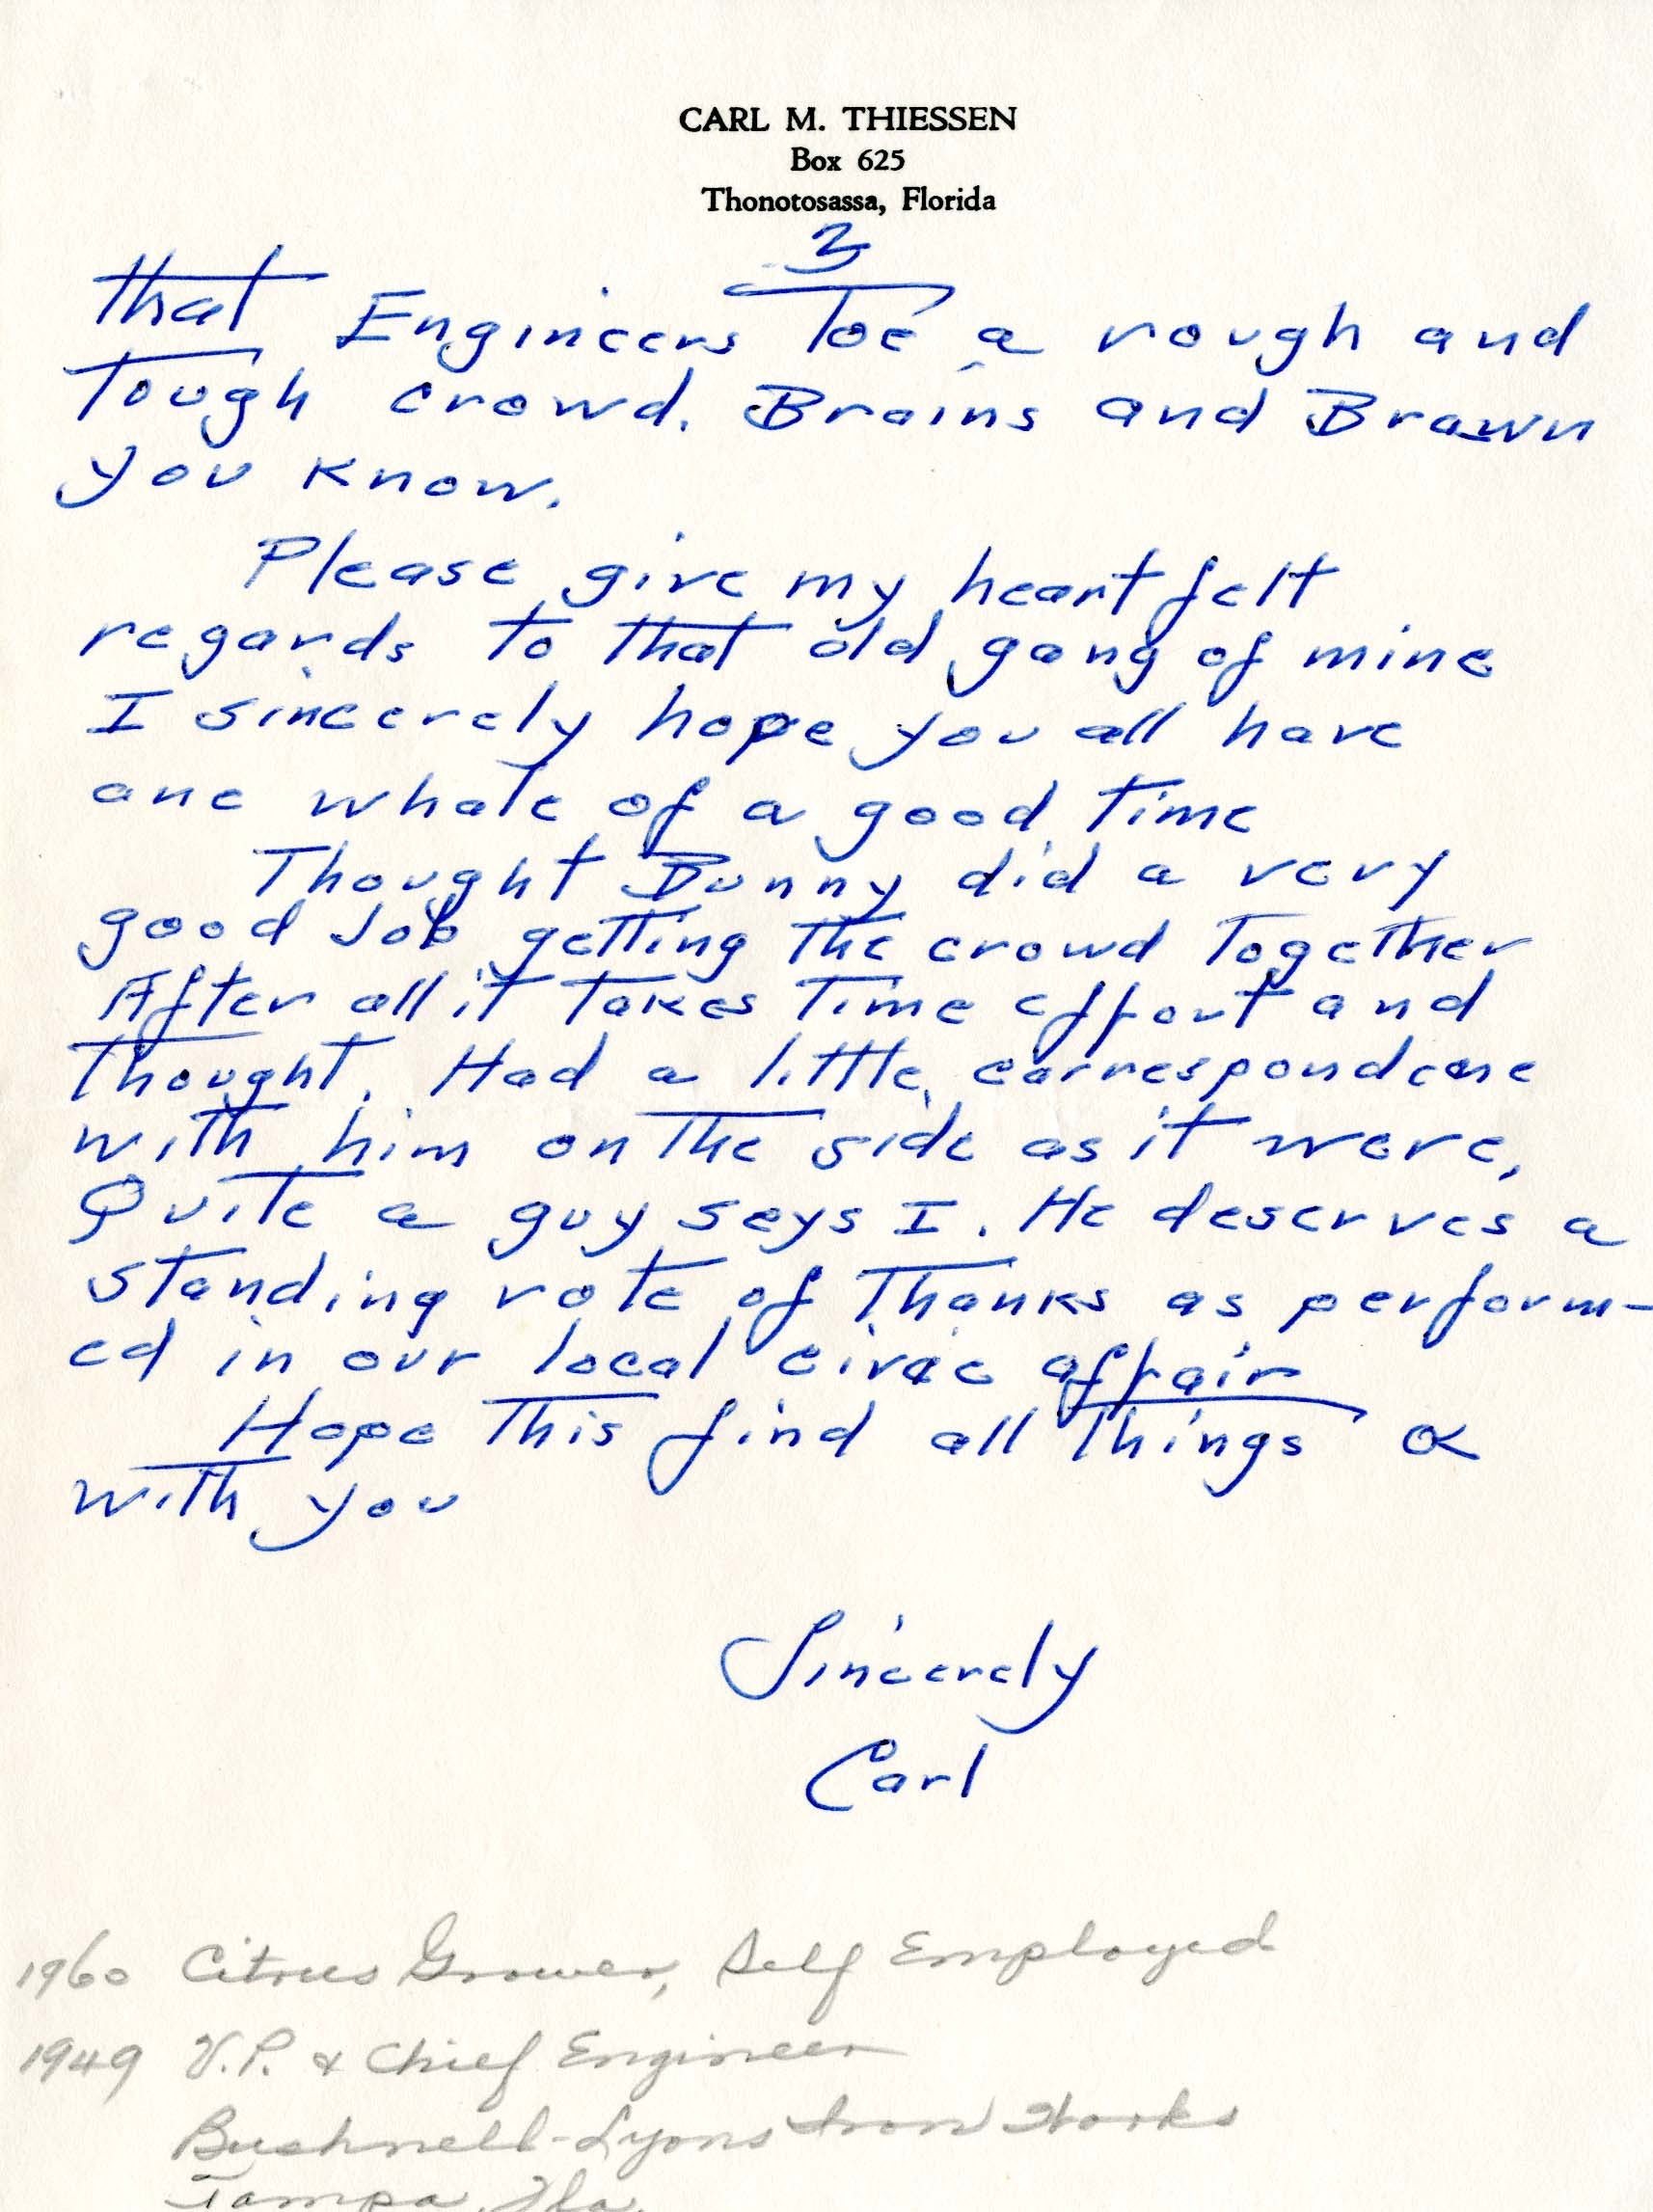 CARL M. THIESSEN
Box 625
Thonotosassa, Florida
3
that Engineers Toe a rough and
Tough crowd. Brains and Brawn
you know.
Please give my heart felt
regards to that old gang of mine
I sincerely hope you all have
one whale of a good time
Thought Dunny did a very
good Job getting the crowd Together
After all it Takes Time effort and
Thought. Had a little correspondence
with him on the side as it were,
Quite a guy says I. He deserves a
standing vote of Thanks as perform-
ed in our local civic affair
Hope This find all Things OK
with you
Sincerely
Carl
1960 Citrus Grower, Self Employed
1949 V.P. & Chief Engineer
Bushnell-Lyons Iron Works
Tampa, Fla.